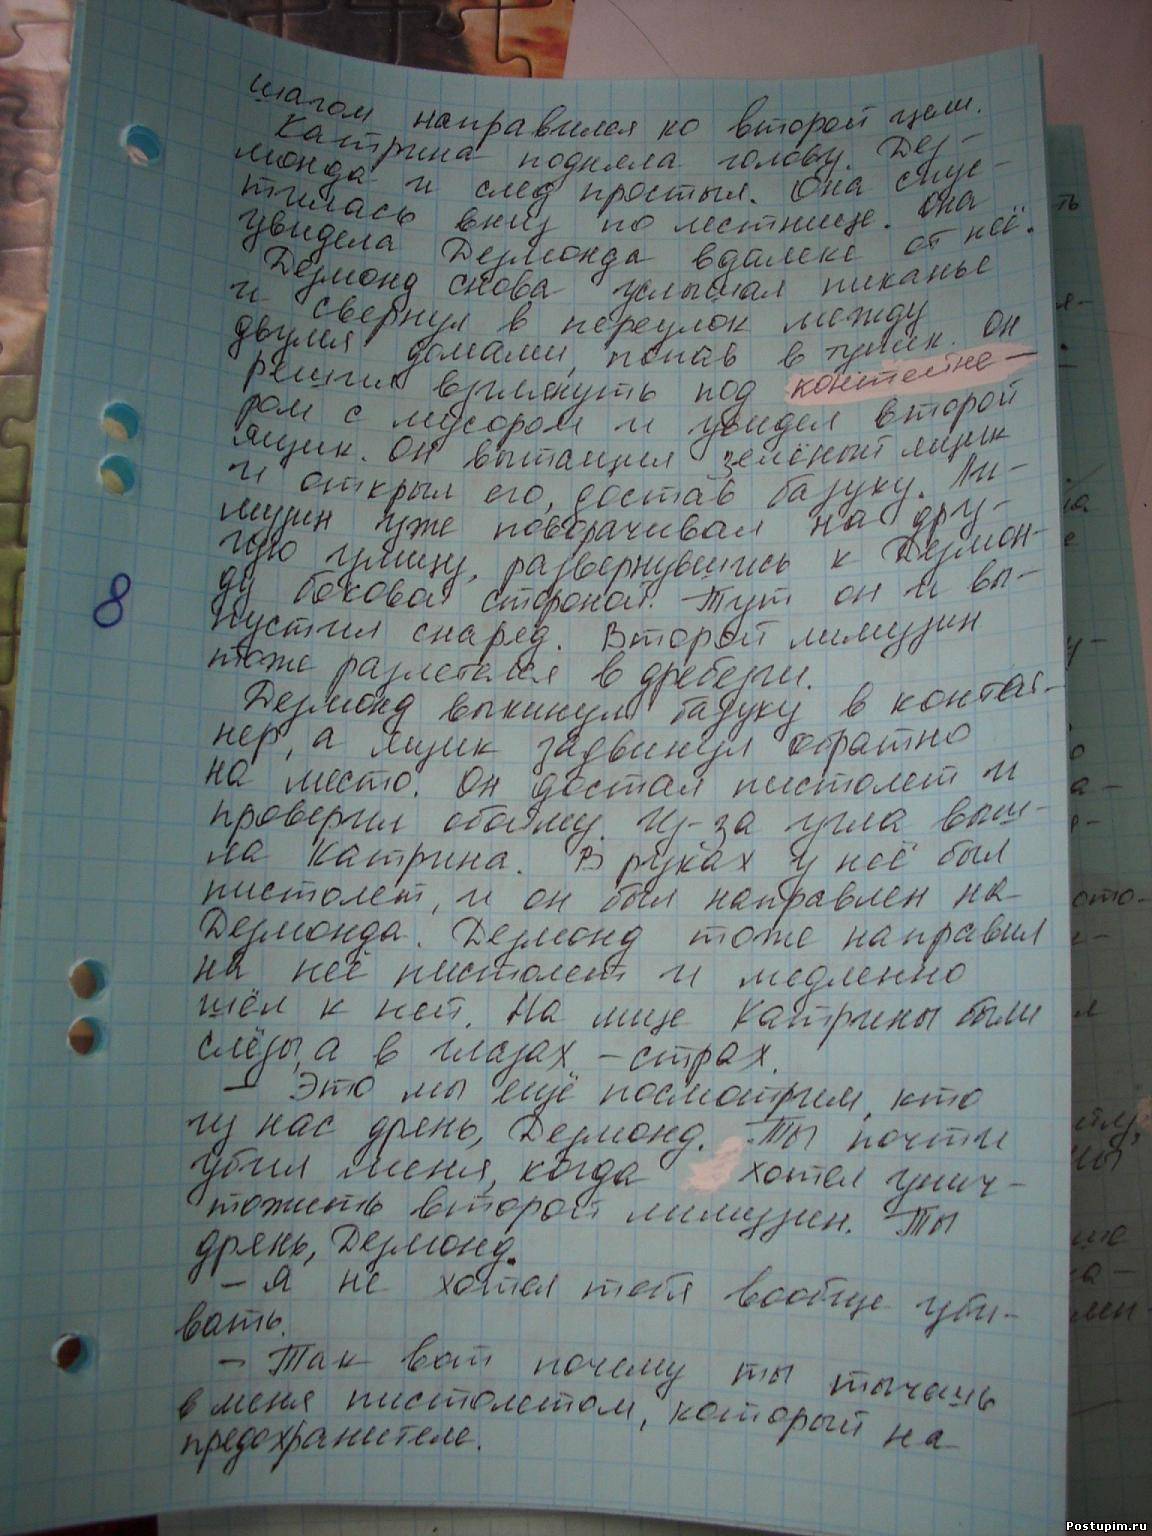 шагом направился ко второй цели.
Катрина подняла голову. Дез-
монда и след простыл. Она спус-
тилась вниз по лестнице. Она
увидела Дезмонда вдалеке от неё.
Дезмонд снова услышал пиканье
и свернул в переулок между
двумя домами, попав в тупик. Он
решил взглянуть под контейне-
ром с мусором и увидел второй
ящик. Он вытащил зелёный ящик
и открыл его, достав базуку. Ли-
музин уже поворачивал на дру-
гую улицу, развернувшись к Дезмон-
ду боковой стороной. Тут он и вы-
пустил снаряд. Второй лимузин
тоже разлетелся в дребезги.
Дезмонд выкинул базуку в контей-
нер, а ящик задвинул обратно
на место. Он достал пистолет и
проверил обойму. Из-за угла выш-
ла Катрина. В руках у неё был
пистолет, и он был направлен на
Дезмонда. Дезмонд тоже направил
на неё пистолет и медленно
шёл к ней. На лице Катрины были
слёзы, а в глазах - страх.
- Это мы ещё посмотрим, кто
из нас дрянь, Дезмонд. Ты почти
убил меня, когда хотел унич-
тожить второй лимузин. Ты
дрянь, Дезмонд.
- Я не хотел тебя вообще уби-
вать.
- Так вот почему ты тычешь
в меня пистолетом, который на
предохранителе.
8
Postupim.ru